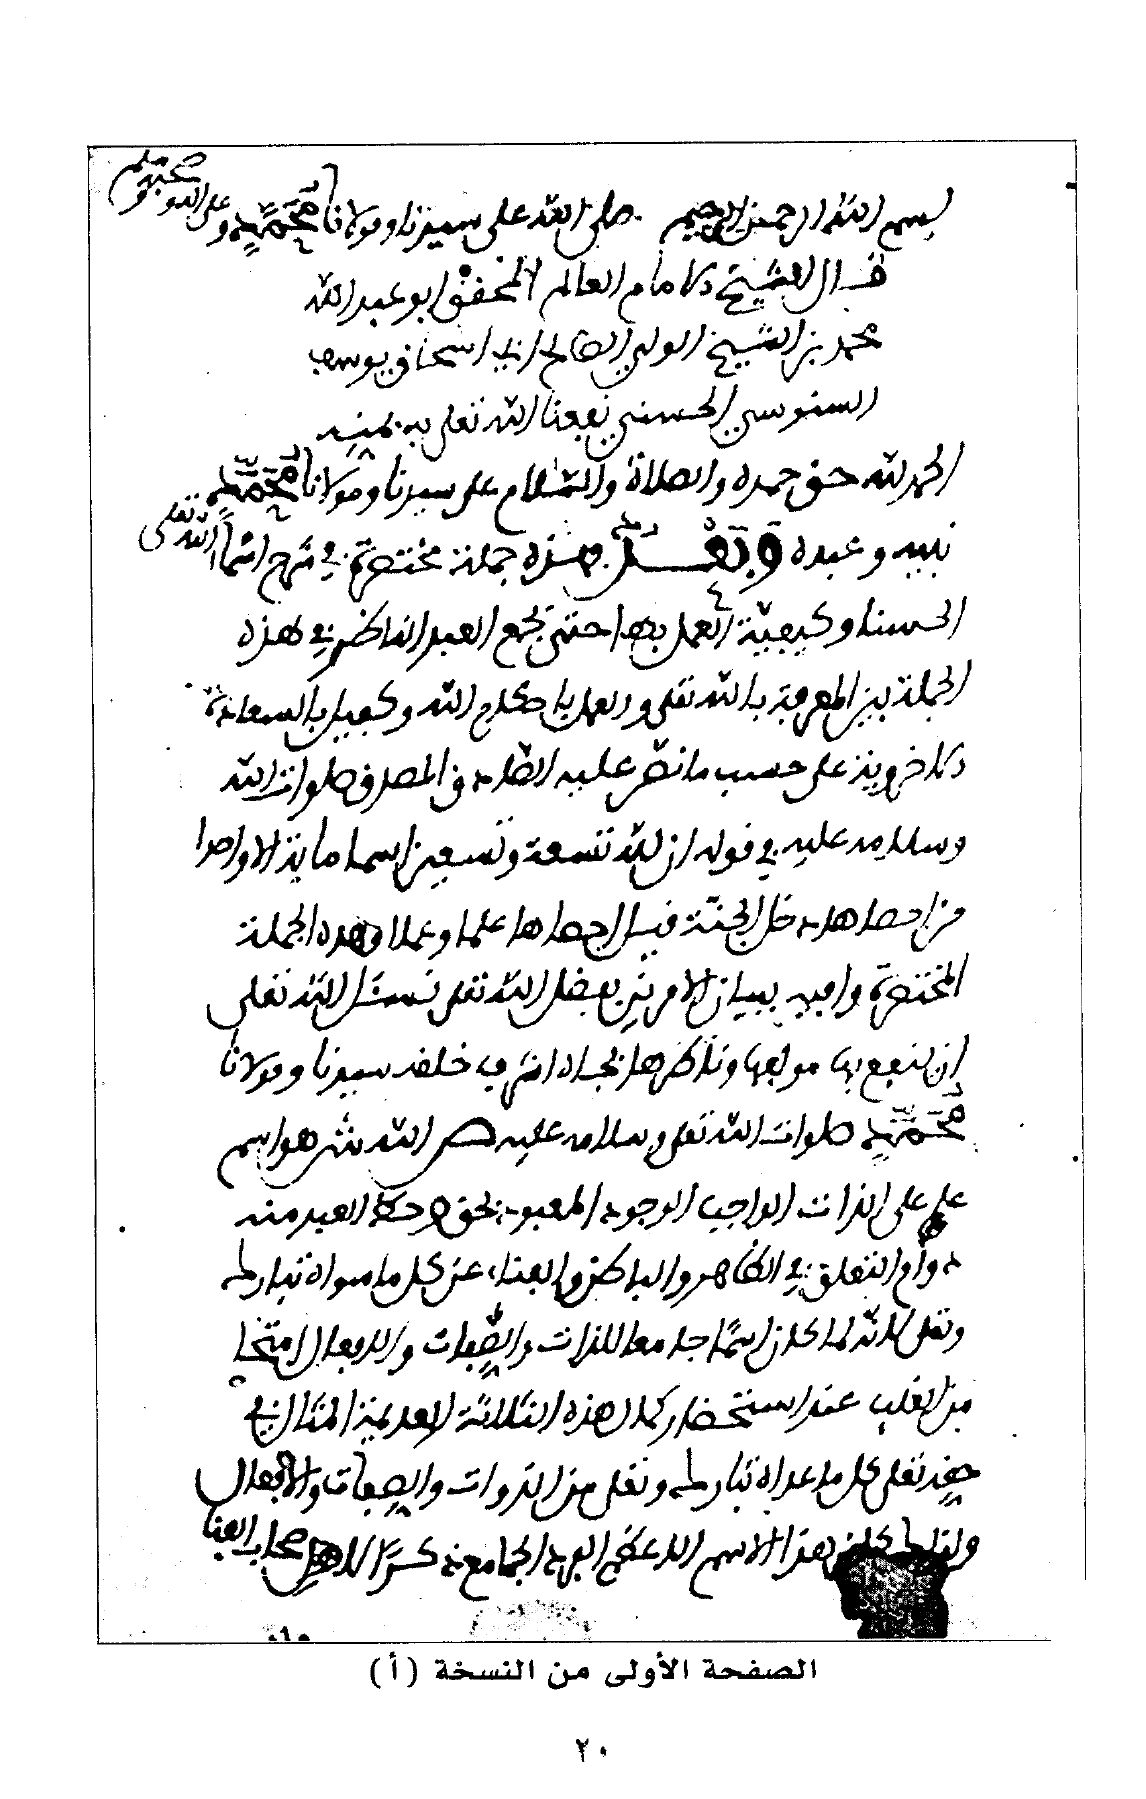 بسم الله الرحمن الرحيم صلى الله على سيدنا ومولانا محمد وعلى آله وصحبه وسلم
قال الشيخ الامام العالم المحقق ابو عبد الله
محمد بن الشيخ الولي الصالح ابي اسحاق يوسف
السنوسي الحسني نفعنا الله تعلى به بمنه
الحمد لله حق حمده والصلاة والسلام على سيدنا ومولانا محمد
نبيه وعبده وبعد فهذه جملة مختصرة في شرح اسما الله تعلى
الحسنا وكيفية العمل بها حتى يجمع العبد الناظر في هذه
الجملة بين المعرفة بالله تعلى والعمل باحكام الله وكفيل بالسعادة
الاخروية على حسب ما نص عليه الصادق المصدق صلوات الله
وسلامه عليه في قوله ان لله تسعة وتسعين اسما ماية الا واحدا
من احصاها دخل الجنة قيل احصاها علما وعملا وهذه الجملة
المختصرة وافية ببيان الامرين بفضل الله تعلى نسئل الله تعلى
ان ينفع بها مولفها وناظرها بجاه اشرف خلقه سيدنا ومولانا
محمد صلوات الله تعلى وسلامه عليه الله هو اسم
علم على الذات الواجب الوجود المعبود بحق وحظ العبد منه
دوام التعلق في الظاهر والباطن والفناء عن كل ما سواه تبارك
وتعلى لانه لما كان اسما جامعا للذات والصفات والافعال امتحا
من القلب عند استحضار كمال هذه الثلاثة العديمة المثال في
حقه تعلى كل ما عداه تبارك وتعلى من الذوات والصفات والافعال
ولذلك كان هذا الاسم الاعظم الفرد الجامع ذكرا لاهل الفنا
الصفحة الأولى من النسخة (أ)
٢٠